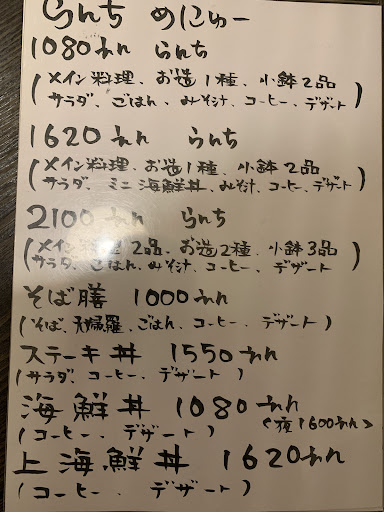 らんち めにゅー
1080えん らんち
(メイン料理、お造1種、小鉢2品
サラダ、ごはん、みそ汁、コーヒー、デザート)
1620えん らんち
(メイン料理、お造1種、小鉢2品
サラダ、ミニ海鮮丼、みそ汁、コーヒー、デザート)
2100えん らんち
(メイン料理2品、お造2種、小鉢3品
サラダ、ごはん、みそ汁、コーヒー、デザート)
そば膳 1000えん
(そば、天婦羅、ごはん、コーヒー、デザート)
ステーキ丼 1550えん
(サラダ、コーヒー、デザート)
海鮮丼 1080えん
(コーヒー、デザート) <夜1600えん>
上海鮮丼 1620えん
(コーヒー、デザート)